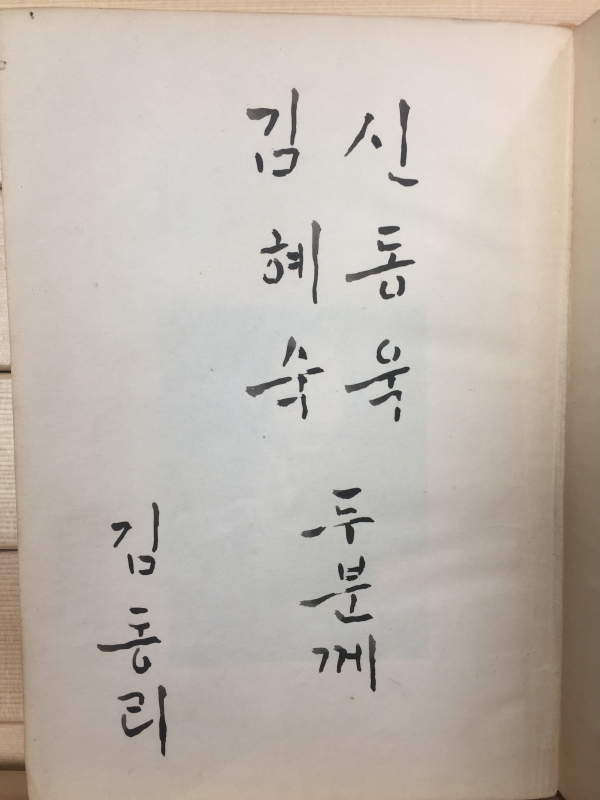 신동욱
김혜숙
두분께
김동리